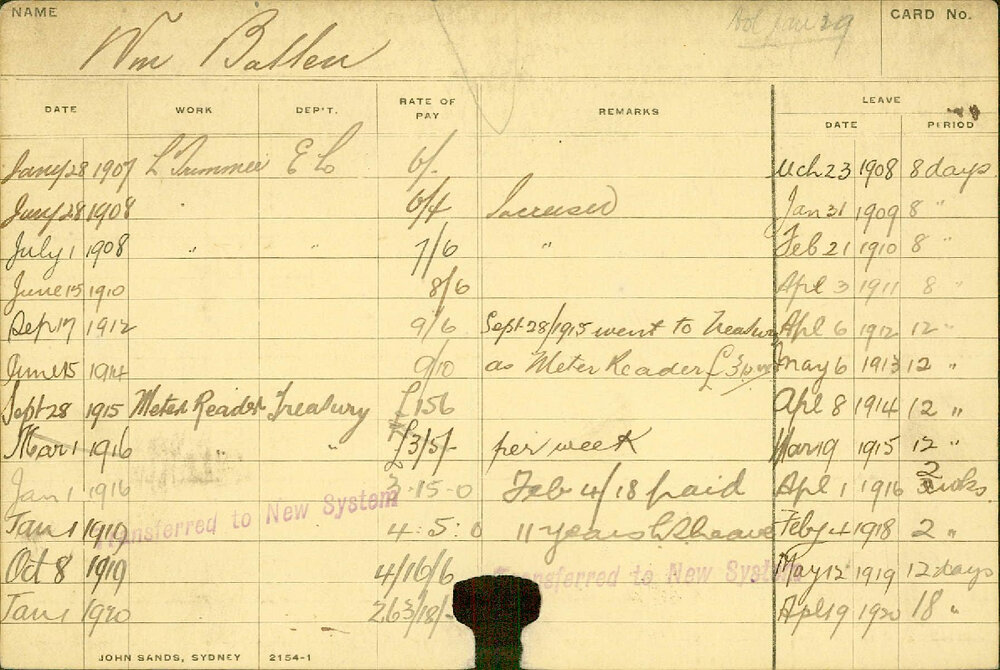 NAME Wm CARD No.
DATE WORK DEP'T. RATE OF PAY REMARKS LEAVE
DATE PERIOD
Jany 28 1907 L Trimmer E Lo 6/- Mch 23 1908 8 days
Jany 28 1908 " 6/4 Increased Jan 31 1909 8 "
July 1 1908 " " 7/6 " Feb 21 1910 8 "
June 15 1910 8/6 Apl 3 1911 8 "
Sep 17 1912 9/6 Sept 28/1915 went to Treasury Apl 6 1912 12 "
June 15 1914 9/10 as Meter Reader May 6 1913 12 "
Sept 28 1915 Meter Reader Treasury £156 Apl 8 1914 12 "
Mar 1 1916 " " £3/5/- per week Mar 19 1915 12 "
Jan 1 1916 3-15-0 Feb 4/18 paid Apl 1 1916 2 wks
Transferred to New System
Jan 1 1919 4:5:0 11 years Feby 4 1918 2 "
Oct 8 1919 4/16/6 May 12 1919 12 days
Transferred to New System
Jan 1 1920 263/18/- Apl 19 1920 18 "
JOHN SANDS, SYDNEY 2154-1